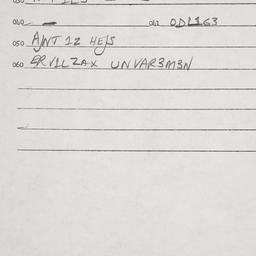 040 — 042 ODL163
050 AJNT 12 HEJS
060 ERV1LZAX UNVAR3M3N